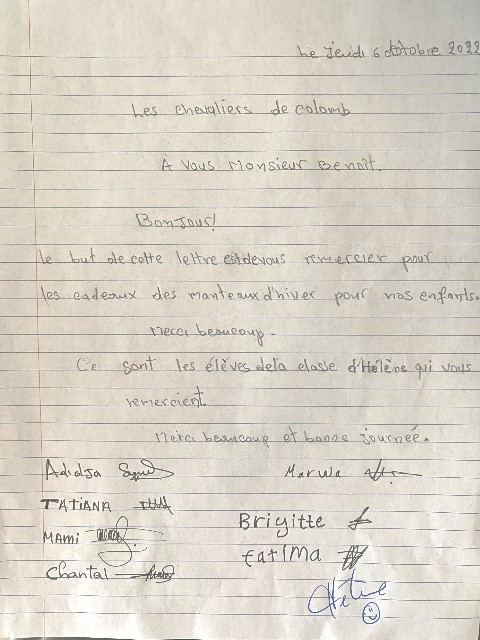 Le jeudi 6 octobre 2022
Les chevaliers de colomb
À vous Monsieur Benoît.
Bonjour!
Le but de cette lettre est de vous remercier pour
les cadeaux des manteaux d'hiver pour nos enfants.
Merci beaucoup.
Ce sont les élèves de la classe d'Hélène qui vous
remercient.
Merci beaucoup et bonne journée.
Adidja
Marwa
TATIANA
Brigitte
MAMi
fatiMa
Chantal